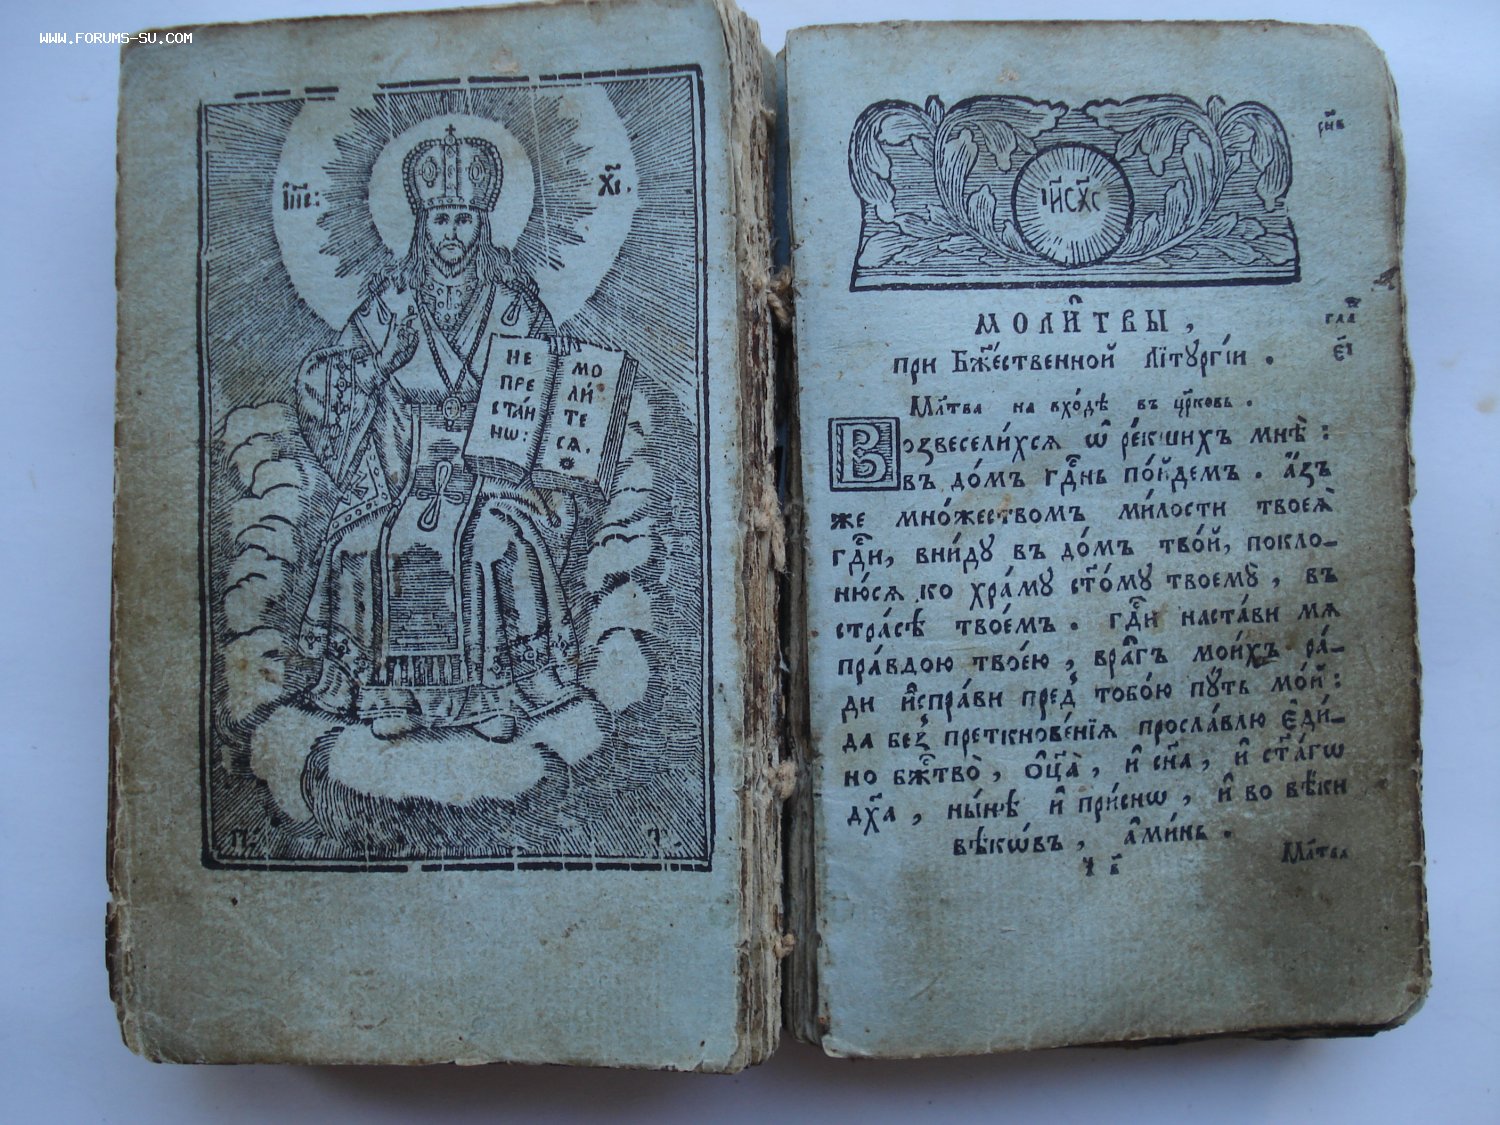 WWW.FORUMS-SU.COM
І҆и҃с:
Х҃с.
НЕ
ПРЕ
СТА́Н
НѠ:
МО
ЛИ́
ТЕ
СѦ.
П:
Т:
І҆и҃сх҃с
МОЛИ̑ТВЫ,
при Бж҃е́ственной Лїтꙋргі́и.
Мл҃тва на вхо́дѣ въ цр҃ковь.
Возвесели́хсѧ ѡ҆ ре́кшихъ мнѣ̀:
въ до́мъ гдⷭ҇нь по́йдемъ. а҆́зъ
же мно́жествомъ ми́лости твоеѧ̀
гдⷭ҇и, вни́дꙋ въ до́мъ тво́й, покло-
ню́сѧ ко хра́мꙋ ст҃о́мꙋ твоемꙋ̀, въ
стра́сѣ твое́мъ. гдⷭ҇и наста́ви мѧ
пра́вдою твое́ю, вра̑гъ мои́хъ ра́-
ди и҆спра́ви пред̾ тобо́ю пꙋ́ть мо́й:
да без̾ преткнове́нїѧ просла́влю є҆ди́-
но бжⷭ҇тво̀, ѻ҆ц҃а̀, и҆ сн҃а, и҆ ст҃а́гѡ
дх҃а, ны́нѣ и҆ при́снѡ, и҆ во вѣ́ки
вѣкѡ́въ, а҆ми́нь.
Мл҃тва